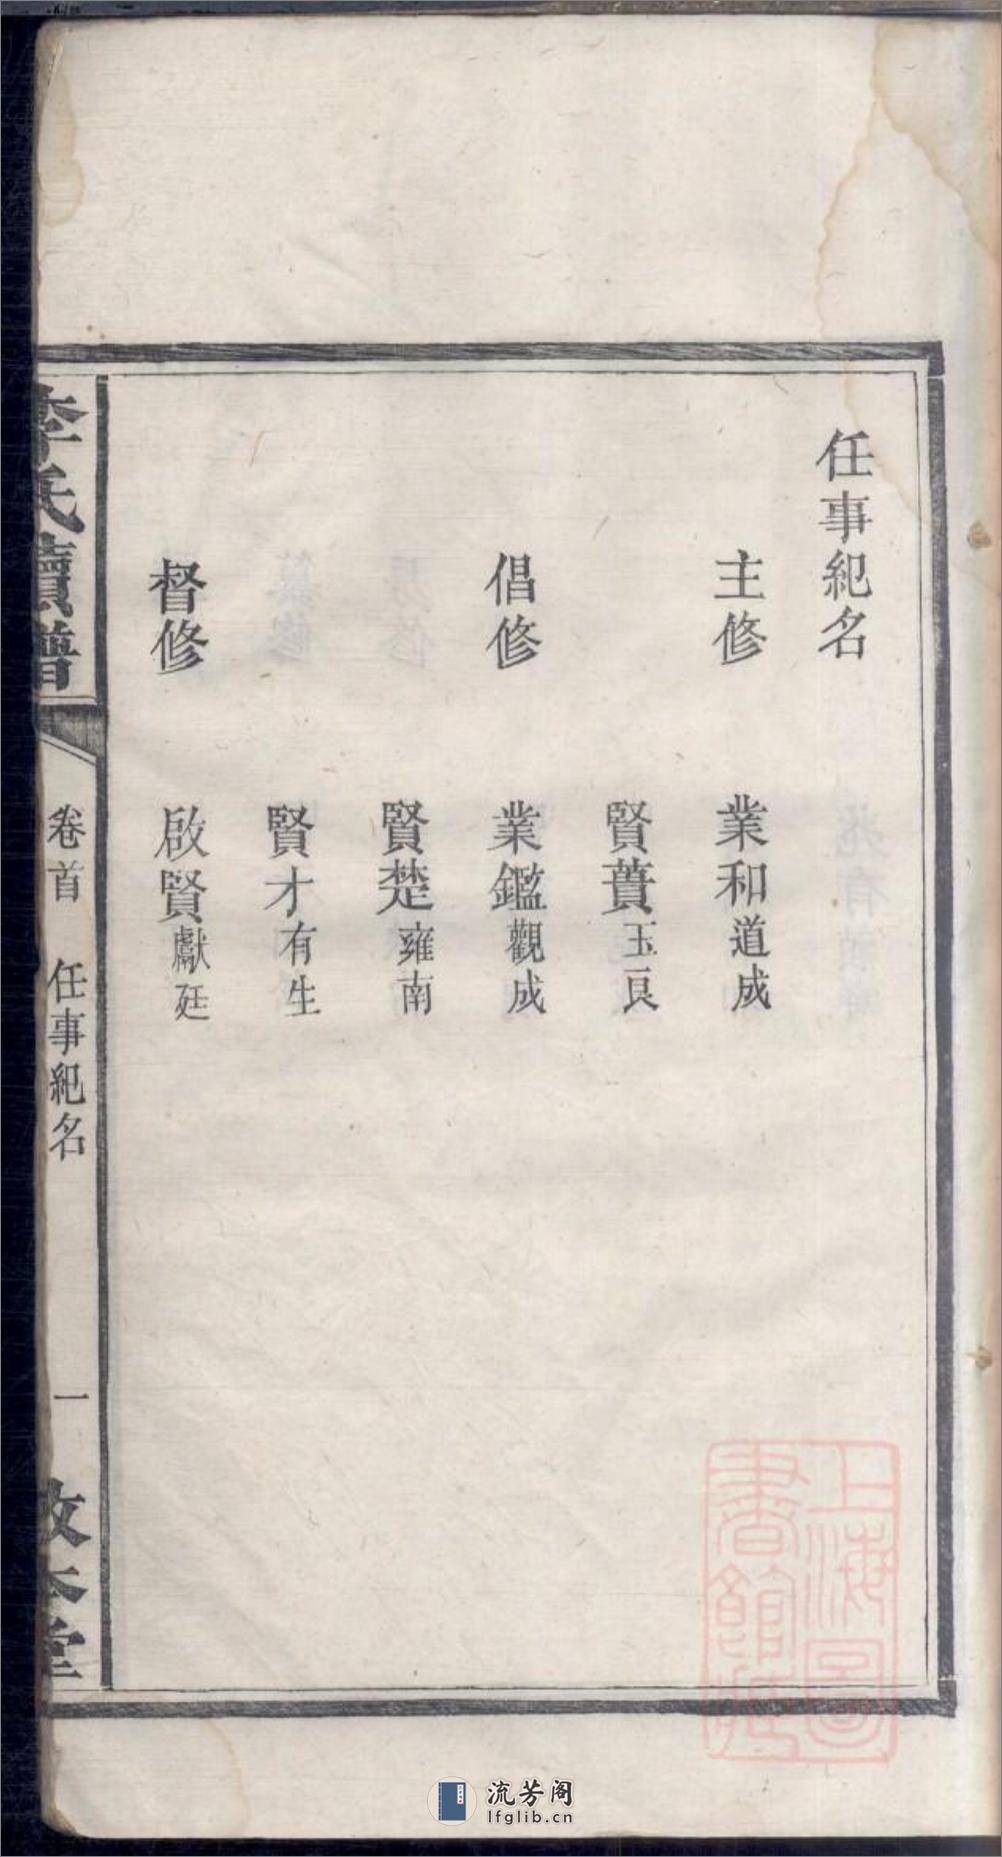 任事紀名
主修 業和道成
賢蕢玉良
倡修 業鑑觀成
賢楚雍南
賢才有生
督修 啟賢獻廷
李氏續譜 卷首 任事紀名 一 敦本堂
上海圖書館藏
流芳阁
lfglib.cn